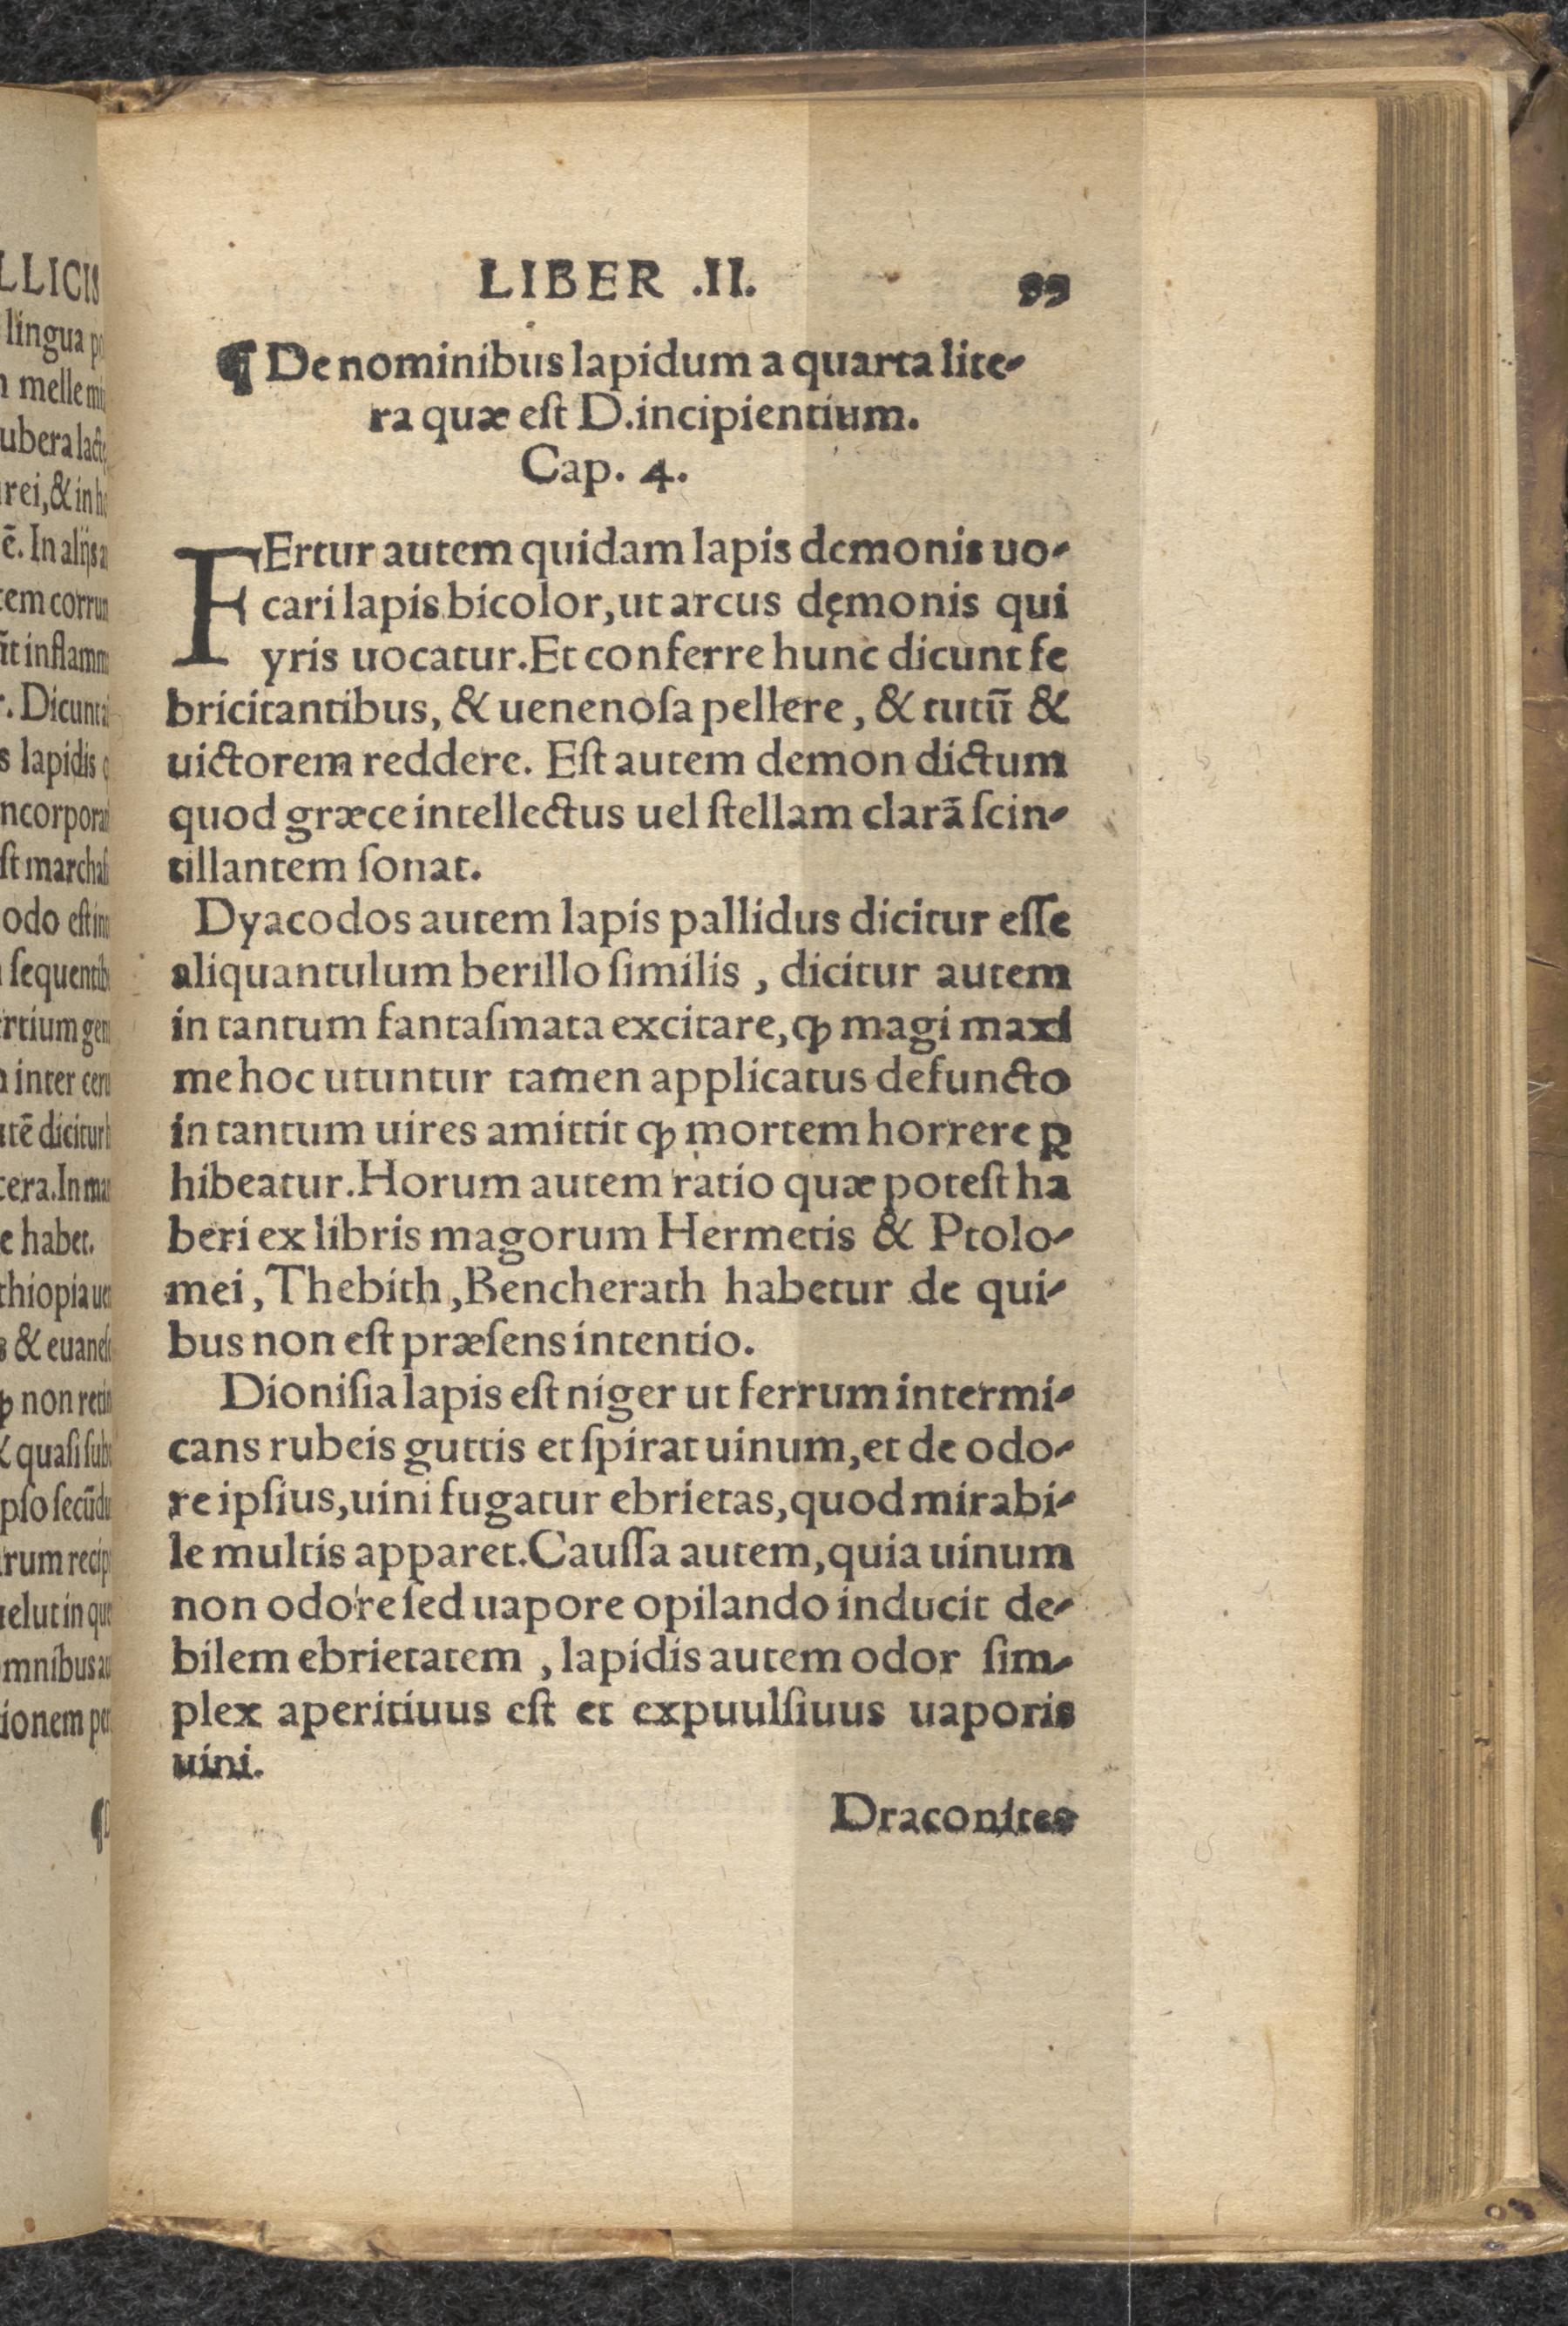 LLICIS
lingua
melle
ubera
rei, & in
In alijs
inflamm
Dicunt
lapidis
odo est
inter
dicitur
habet.
& euanes
non
quasi
elut in
LIBER .II. 99
¶ De nominibus lapidum a quarta lite-
ra quæ eſt D. incipientium.
Cap. 4.
FErtur autem quidam lapis demonis uo-
cari lapis bicolor, ut arcus dęmonis qui
yris uocatur. Et conferre hunc dicunt fe
bricitantibus, & uenenoſa pellere, & tutū &
uictorem reddere. Eſt autem demon dictum
quod græce intellectus uel ſtellam clarā ſcin-
tillantem ſonat.
Dyacodos autem lapis pallidus dicitur eſſe
aliquantulum berillo ſimilis, dicitur autem
in tantum fantaſmata excitare, ꝙ magi maxi
me hoc utuntur tamen applicatus defuncto
in tantum uires amittit ꝙ mortem horrere ꝓ
hibeatur. Horum autem ratio quæ poteſt ha
beri ex libris magorum Hermetis & Ptolo-
mei, Thebith, Bencherath habetur de qui-
bus non eſt præſens intentio.
Dioniſia lapis eſt niger ut ferrum intermi-
cans rubeis guttis et ſpirat uinum, et de odo-
re ipſius, uini fugatur ebrietas, quod mirabi-
le multis apparet. Cauſſa autem, quia uinum
non odore ſed uapore opilando inducit de-
bilem ebrietatem, lapidis autem odor ſim-
plex aperitiuus eſt et expuulſiuus uaporis
uini.
Draconites